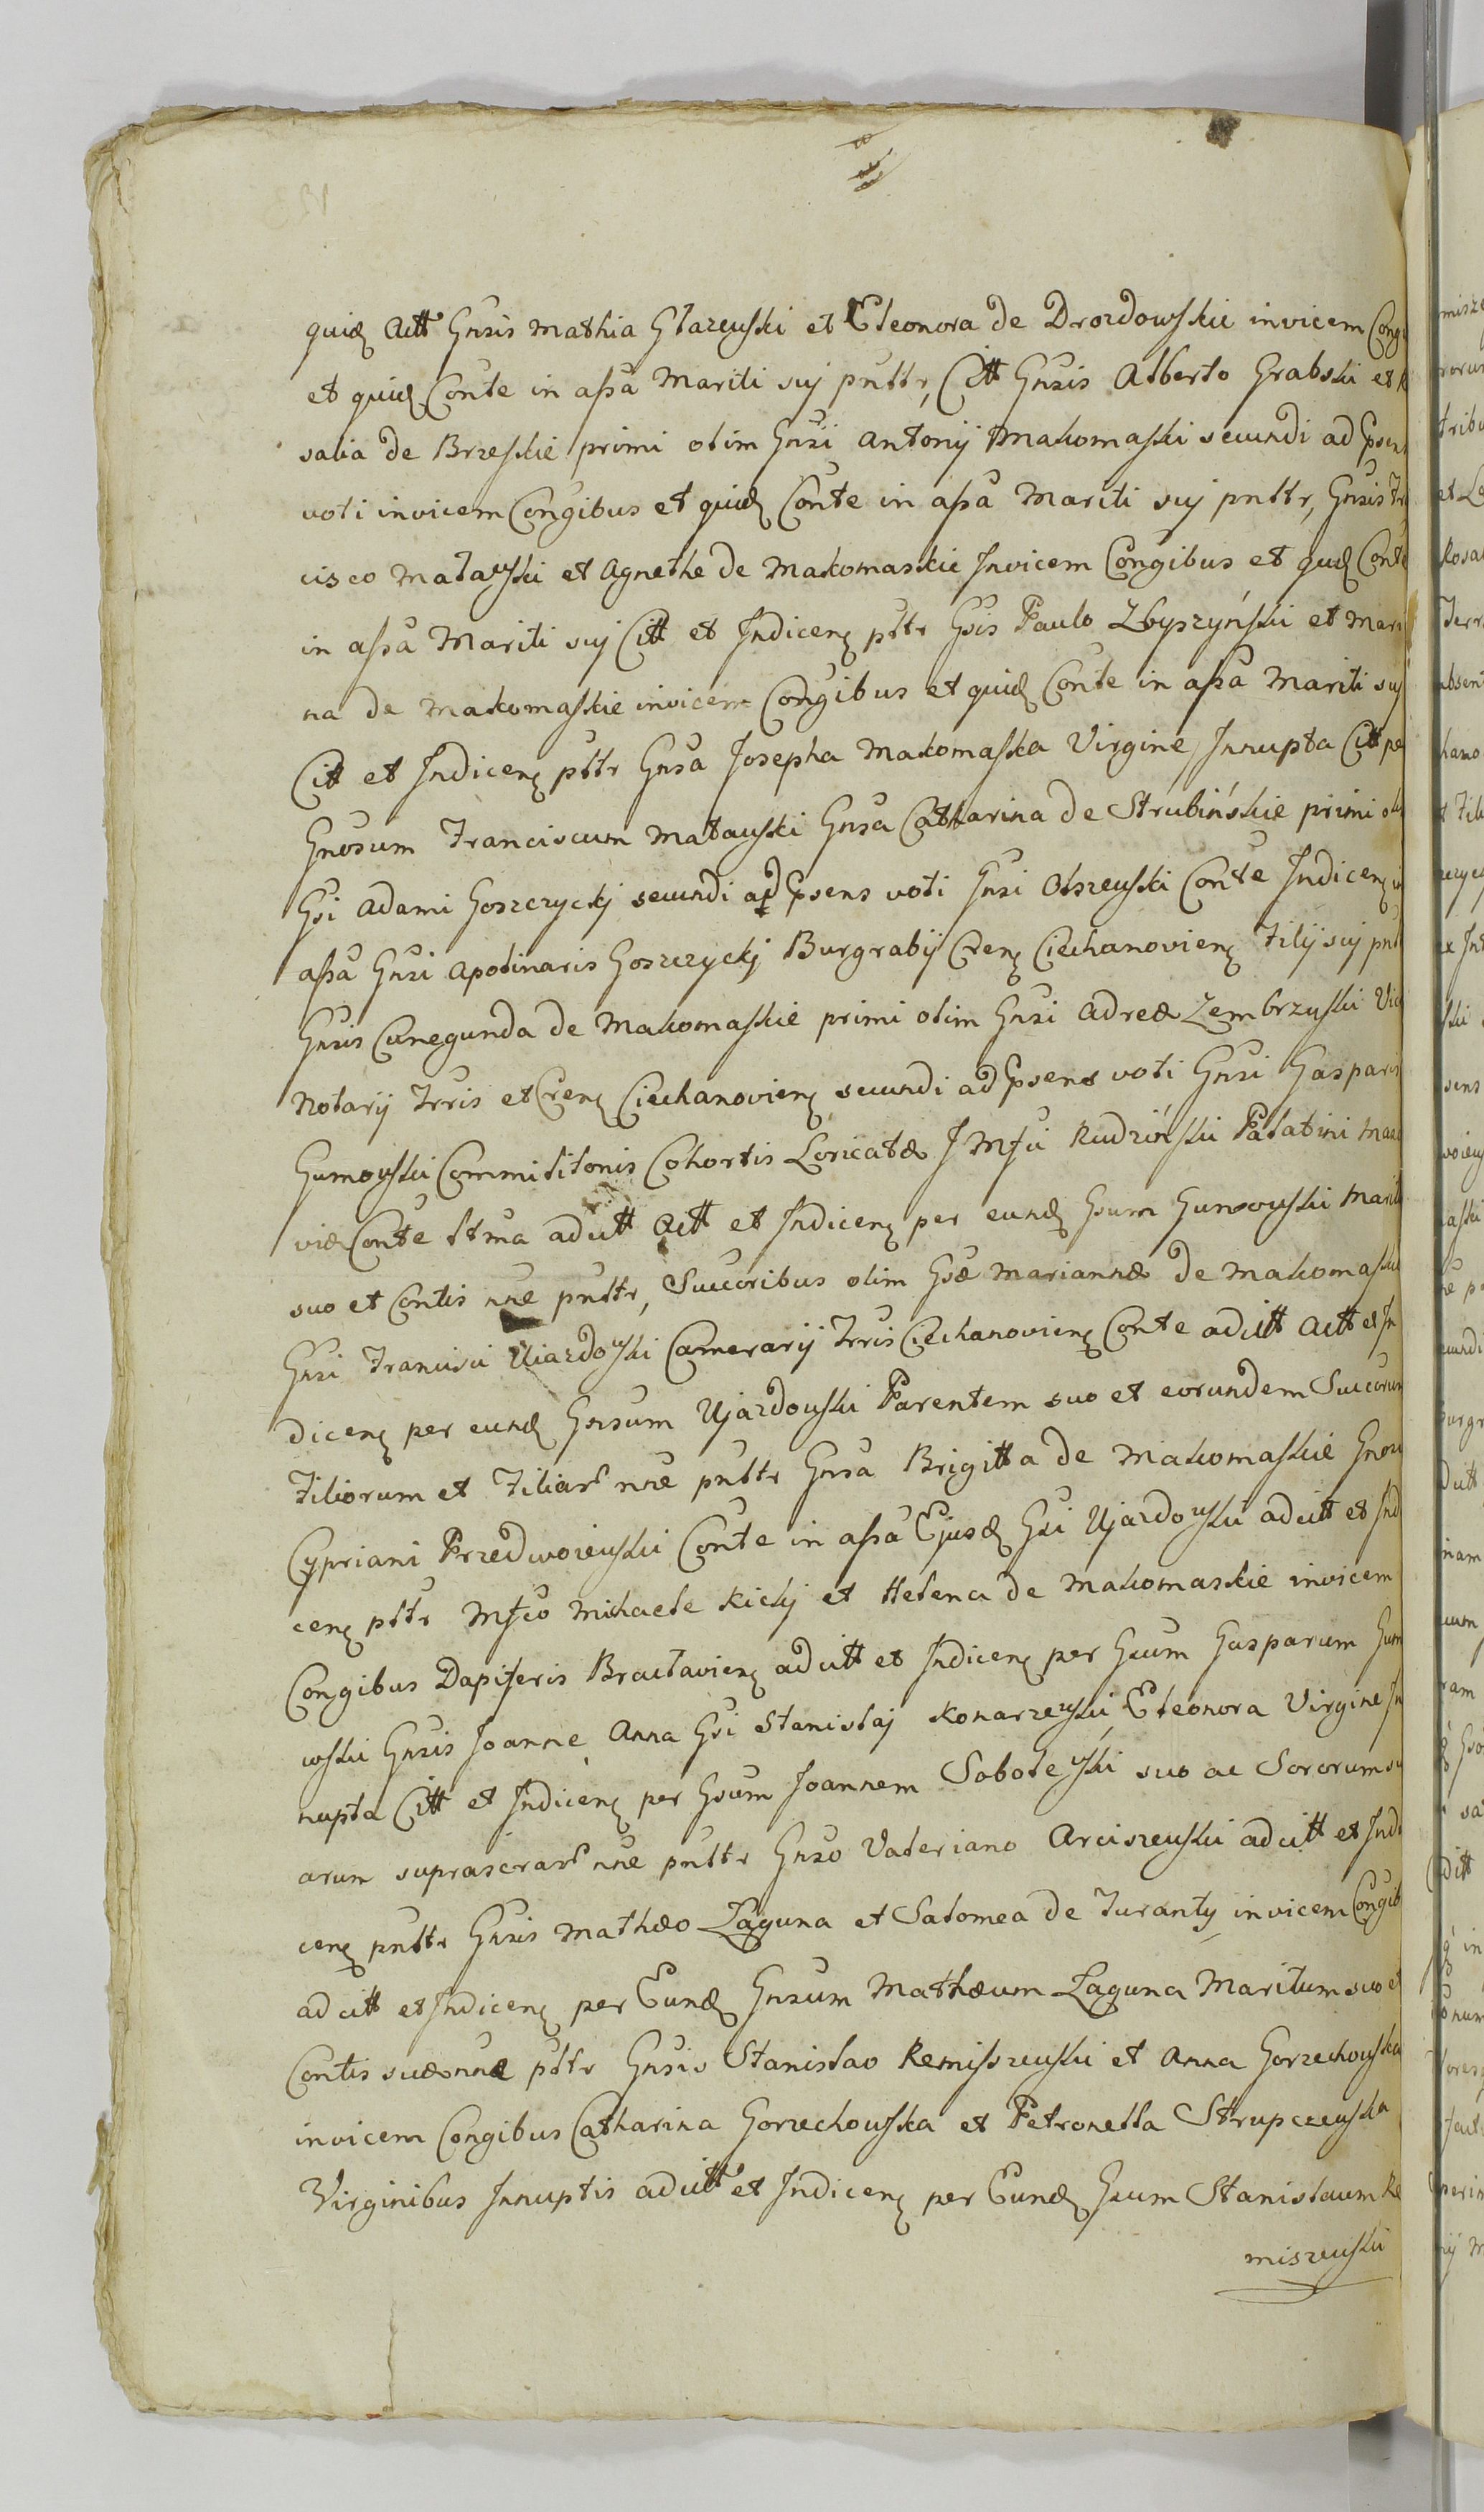 quidē Actt Gnris Mathia Głazewski et Eleonora de Drozdowskie invicem Congi
et quidē Conte in assa Mariti suj pnttr, Citt Gnsis Alberto Grabski et R
salia de Brzeskie primi olim Gnsi Antonij Makomaski secundi ad Psens
voti invicem Congibus et quidē Conte in assa Mariti suj pnttr, Gnsis Fr
cisco Mataŭski et Agnethe de Makomaskie Invicem Congibus et quidē Conte
in assa Mariti suj Citt et Indicenē pttr Gsis Paulo Zbyszyński et Mari
na de Makomaskie invicem Congibus et quidē Conte in assa Mariti suj
Citt et Indicenē pttr Gnsa Josepha Makomaska Virgine Innupta Citt pe
Gnosum Franciscum Matauski Gnsa Catharina de Strubińskie primi oli
Gsi Adami Goszczyckj secundi ad Psens voti Gnsi Olszewski Conte Indicenē in
assa Gnsi Apolinaris Goszczyckj Burgrabij Crenē Ciechanovienē Filij suj pntt
Gnsis Cunegunda de Makomaskie primi olim Gnsi Adreæ Zembrzuski Vice
Notarij Trris et Crenē Ciechanovienē secundi ad Psens voti Gnsi Gasparis
Gumowski Commilitonis Cohortis Loricatæ J Mfci Rudziński Palatini Mazo
viæ Conte ltma adcitt Actt et Indicenē per eundē Gsum Gumowski Marit
suo et Contis nne pnttr, Succoribus olim Gsæ Mariannæ de Makomaskie
Gnsi Francisci Uiazdowski Camerarij Trris Ciechanovienē Conte adcitt Actt et In
dicenē per eundē Gnsum Ujazdowski Parentem suo et eorundem Succorum
Filiorum et Filiar nne pnttr Gnsa Brigitta de Makomaskie Gnosi
Cypriani Przedwoiewski Conte in assa Ejusdē Gsi Ujazdowski adcitt et Indi
cenē pttr Mfco Michaele Kickj et Helena de Makomaskie invicem
Congibus Dapiferis Braclavienē adcitt et Indicenē per Gsum Gasparum Gum
wski Gnsis Joanne Anna Gsi Stanislaj Konarzewski, Eleonora Virgine In
nupta Citt et Indicenē per Gsum Joannem Sobolewski suo ac Sororum su
arum suprascrar nne pnttr Gnso Valeriano Arciszewski adcitt et Indi
cenē pnttr Gnsis Mathæo Laguna et Salomea de Turanty invicem Congib
adcitt et Indicenē per Eundē Gnsum Mathæum Laguna Maritum suo et
Contis suæ nne pttr Gnsis Stanislao Remiszewski et Anna Gorzechowska
invicem Congibus Catharina Gorzechowska et Petronella Strupczewska
Virginibus Innuptis adcitt et Indicenē per Eundē Gsum Stanislaum Re
miszewski